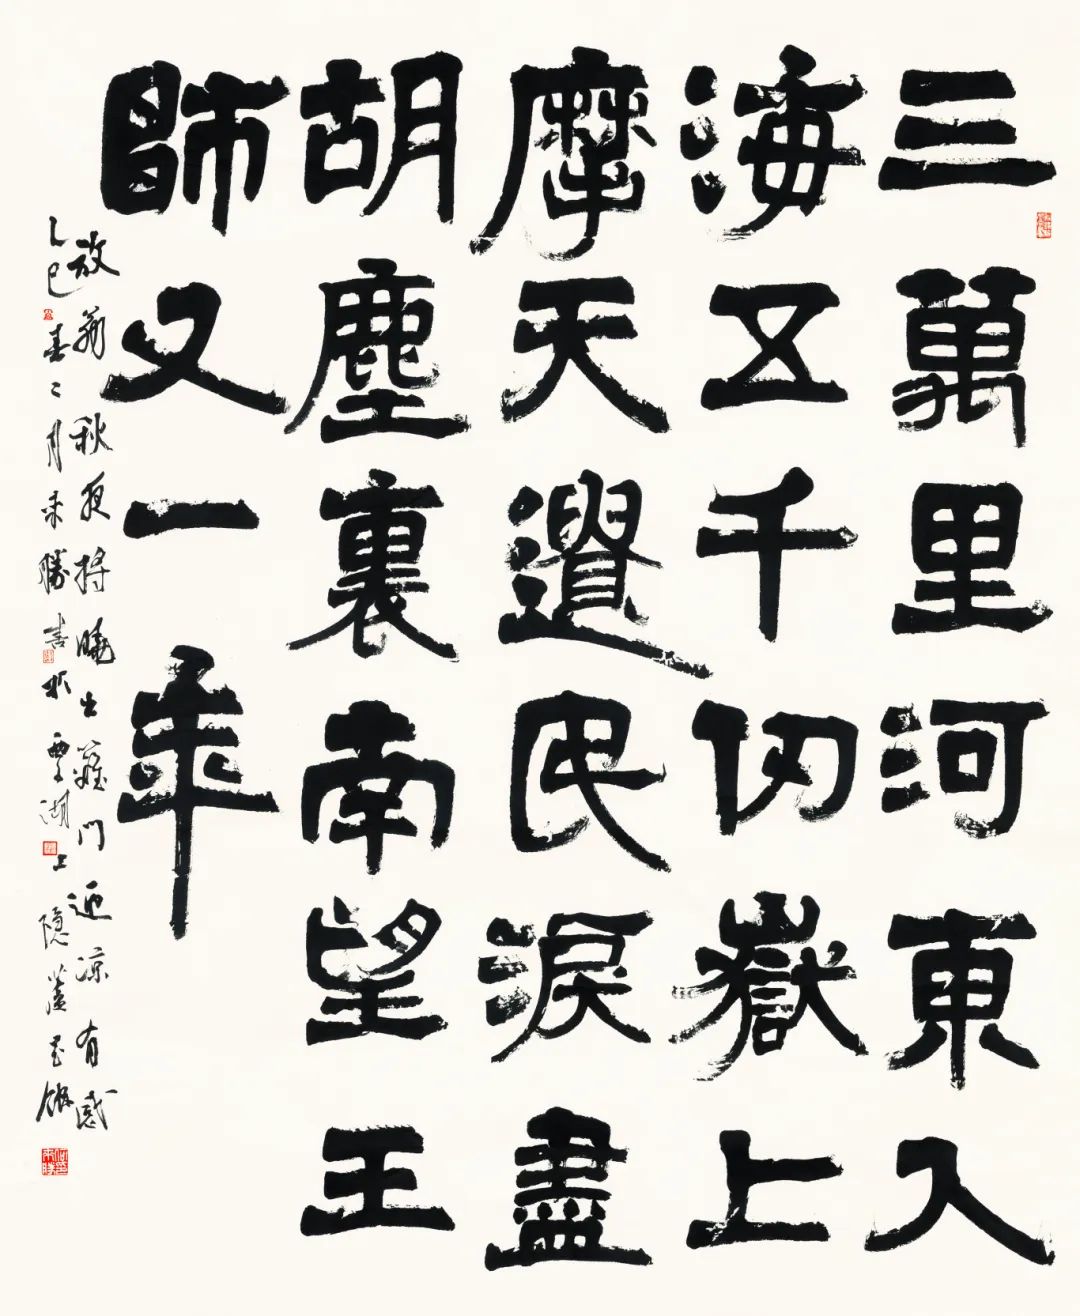 三萬里河東入
海五千仞嶽上
摩天遺民淚盡
胡塵裏南望王
師又一年
放翁秋夜將曉出籬門迎涼有感
乙巳春二月來勝書於覃湖上隐廬